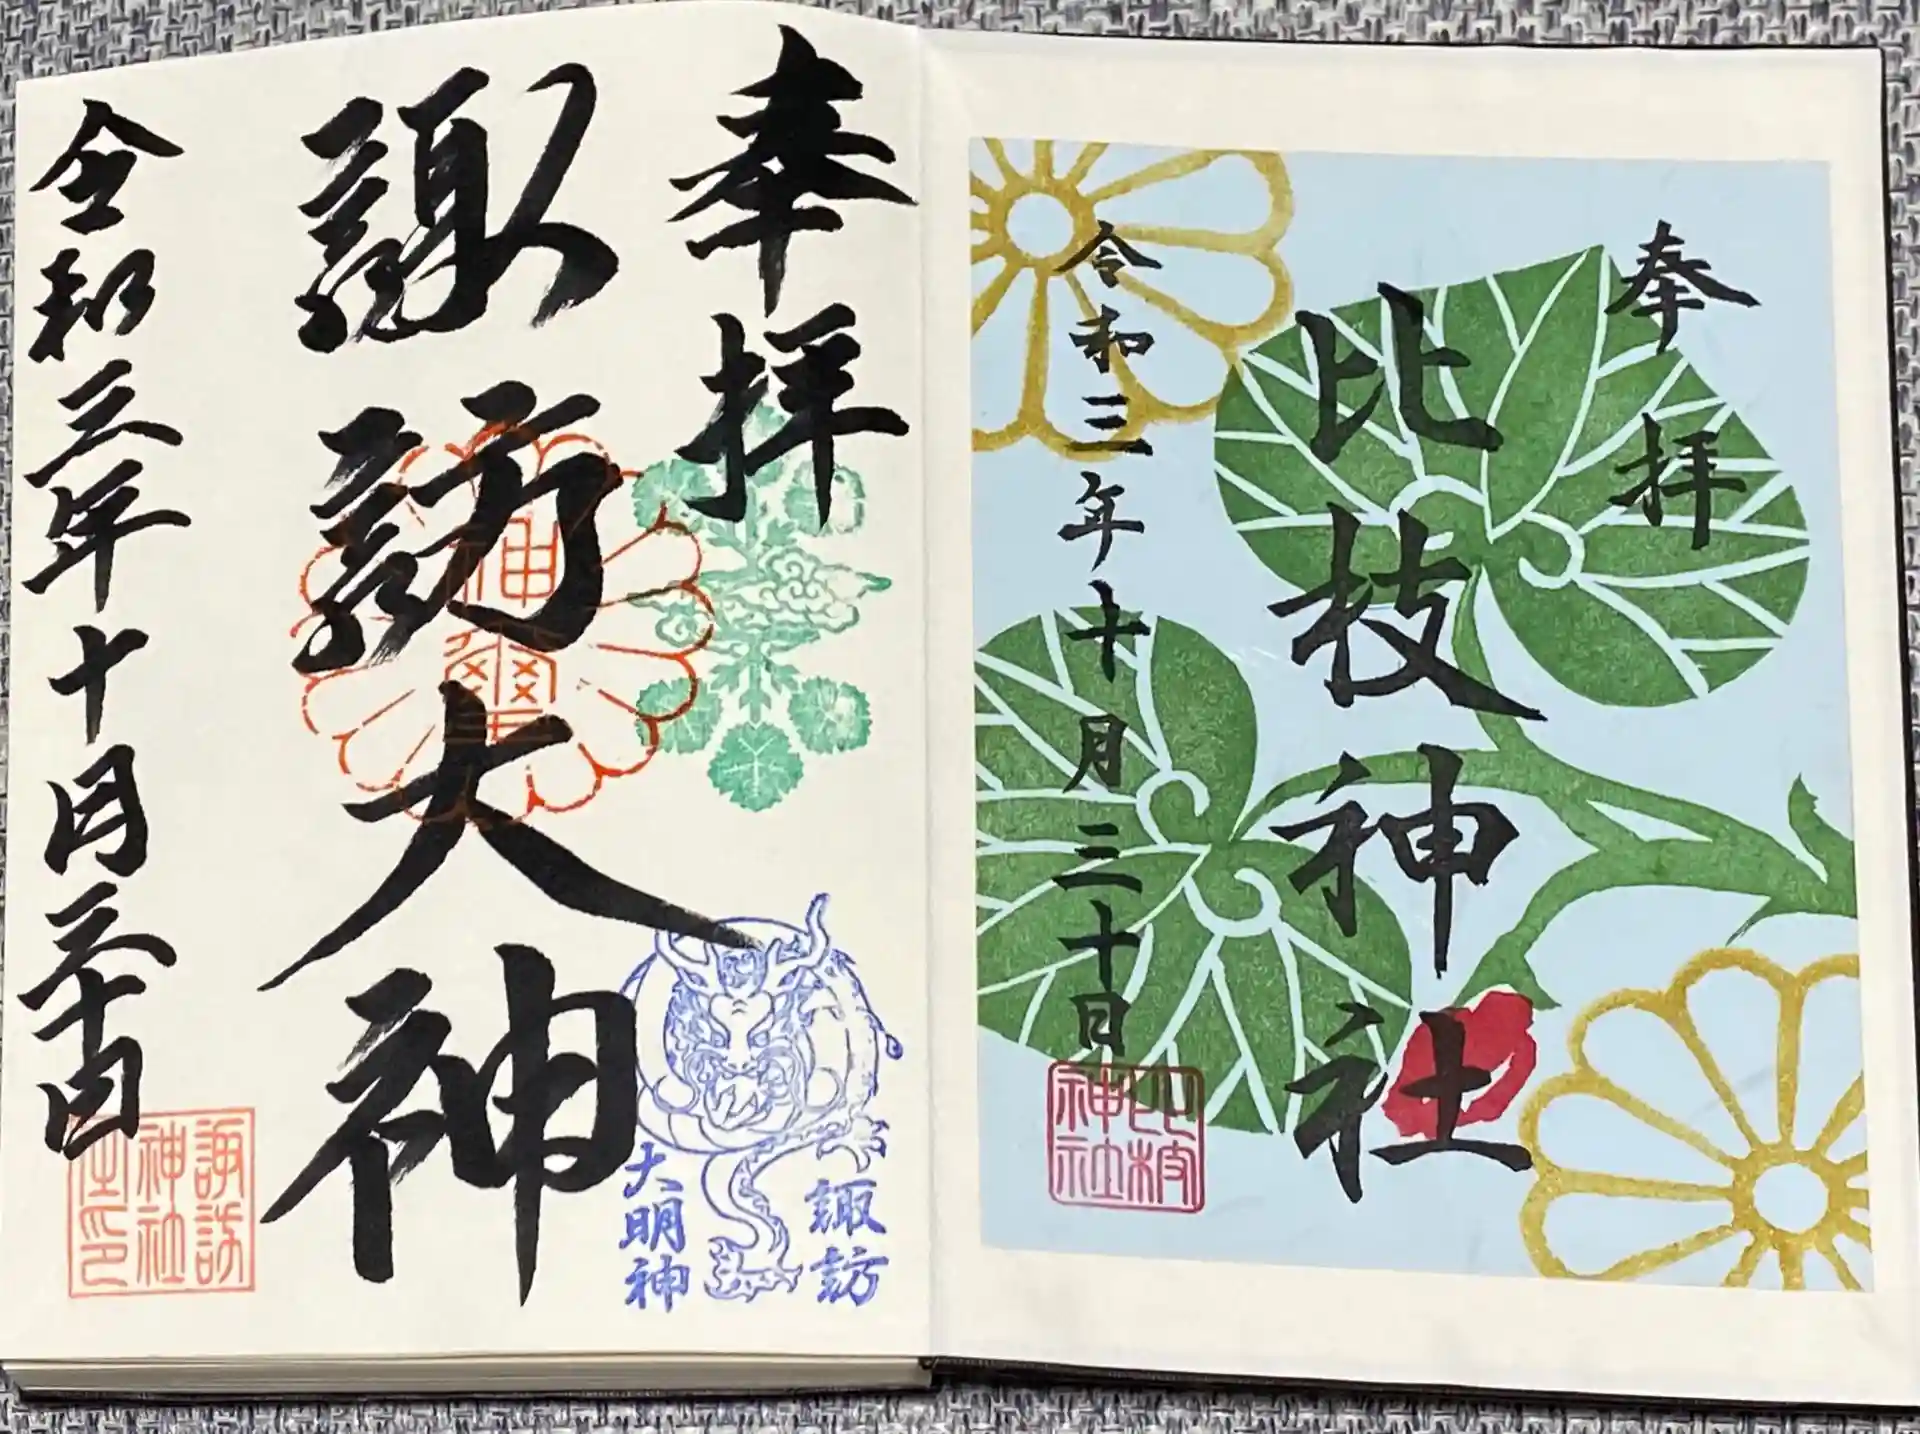 奉拝
比枝神社
令和三年十月三十日
比枝神社
奉拝
諏訪大神
神璽
諏訪
大明神
令和三年十月三十日
諏訪
神社
之印